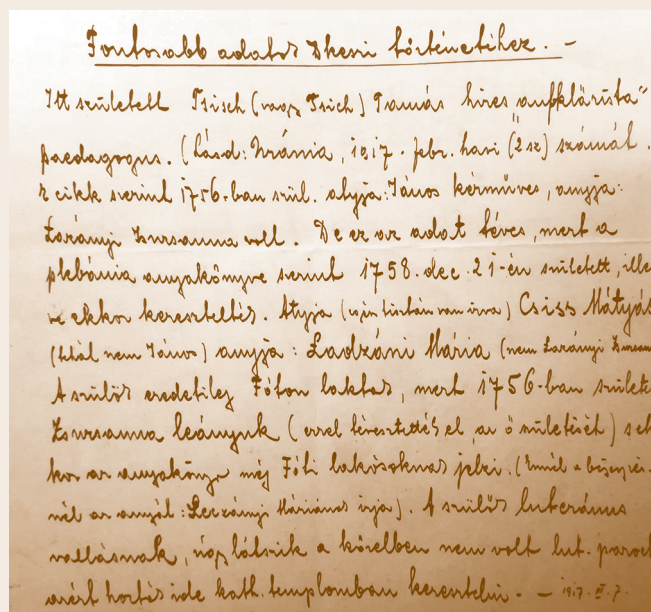 Fontosabb adatok Dkeszi történetéhez. -
Itt született Tsisch (vagy Tsich) Tamás híres "aufklärista"
paedagogus. (Lásd: Uránia, 1917. febr. havi (2 sz) számát.
E cikk szerint 1756-ban szül. atyja: János kézműves, anyja:
Zorányi Zsuzsanna volt. De ez az adat téves, mert a
plébánia anyakönyve szerint 1758. dec. 21-én született, ille
ve ekkor kereszteltés. Atyja (így tisztán van írva) Csiss Mátyás
(tehát nem János) anyja: Ladzáni Mária (nem Zorányi Zsuzsan
A szülők eredetileg Fóton laktak, mert 1756-ban születe
Zsuzsanna leányuk (ezzel tévesztették el az ő születését) s ek
kor az anyakönyv még Fóti lakósoknak jelzi. (Ennél a bejegyzés-
nél az anyát: Leczányi Máriának írja). A szülők lutheránus
vallásnak, úgy látszik a közelben nem volt lut. paroch
azért hozták ide kath. templomban keresztelni. - 1917.